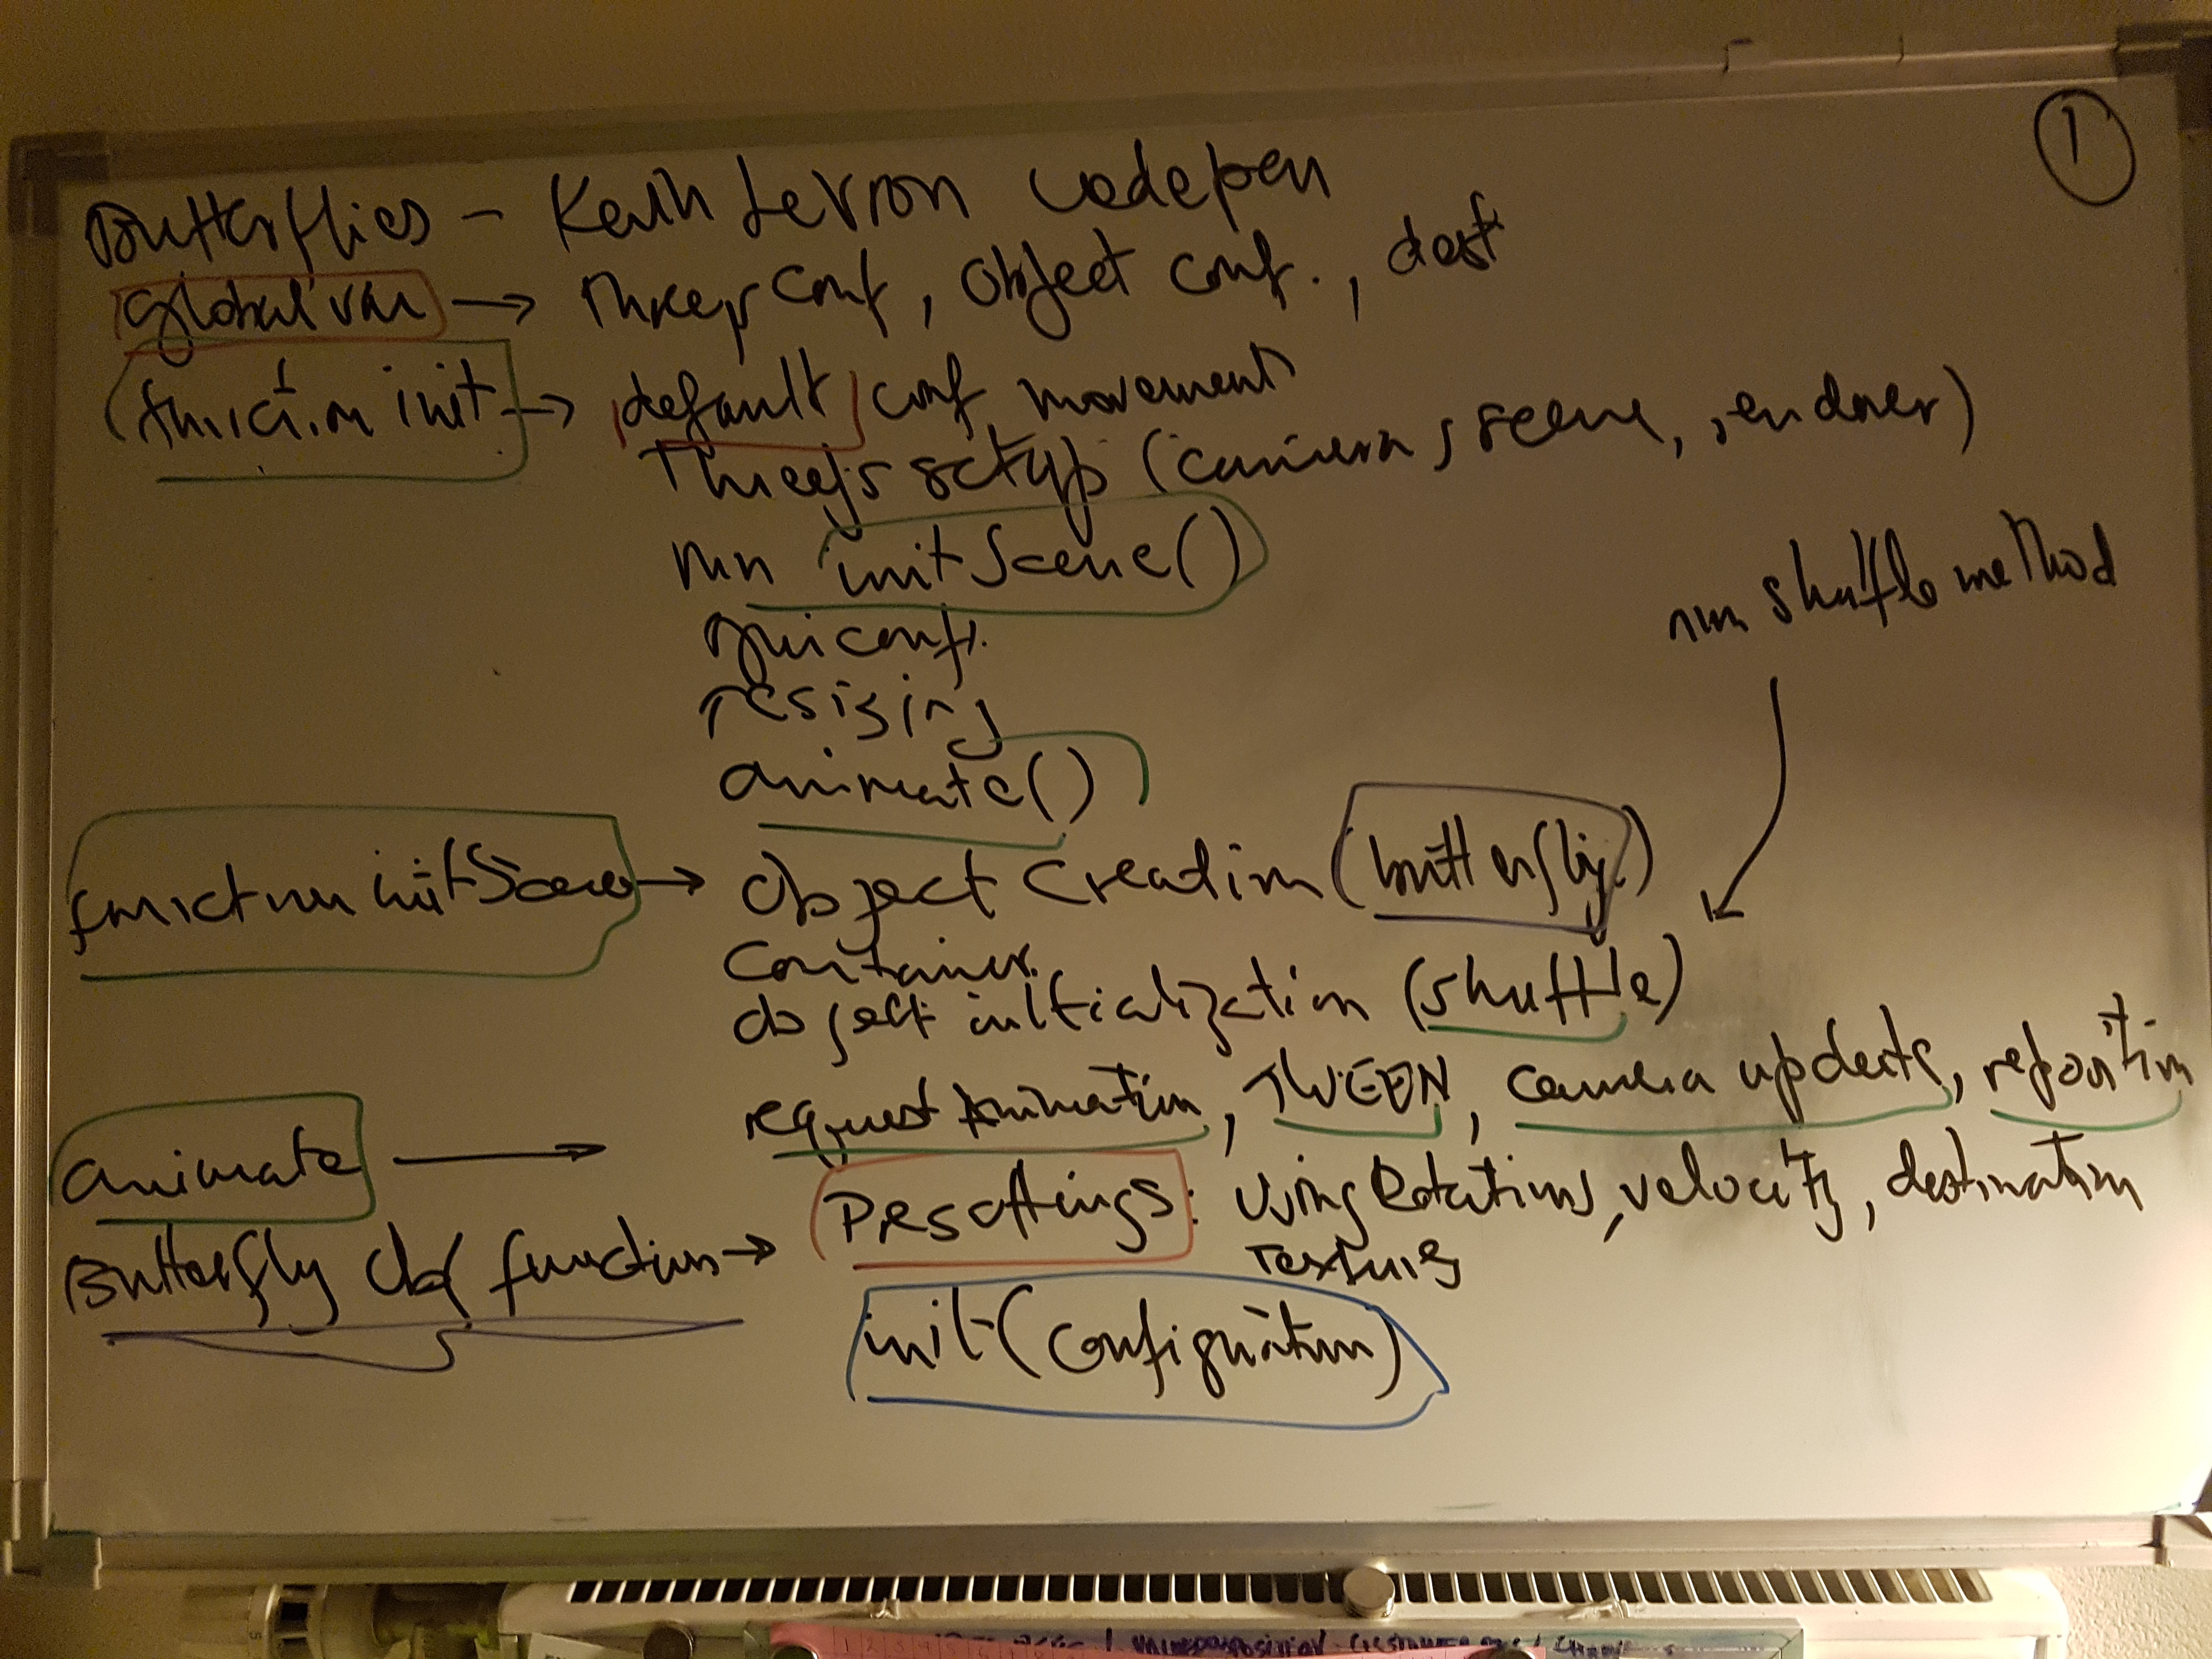 1
Butterflies - Kevin Levron Codepen
global var → threejs conf, Object conf., dest
(function init → default conf movement
Threejs setup (camera, scene, rendner)
run initScene()
gui conf.
resizing
animate()
run shuffle method
function initScene → Object Creation (butterfly)
Container.
object initialization (shuffle)
animate → request Animation, TWEEN, camera updates, reposition
Butterfly function → Presettings: Using Rotations, velocity, destination
Textures
init (configuration)